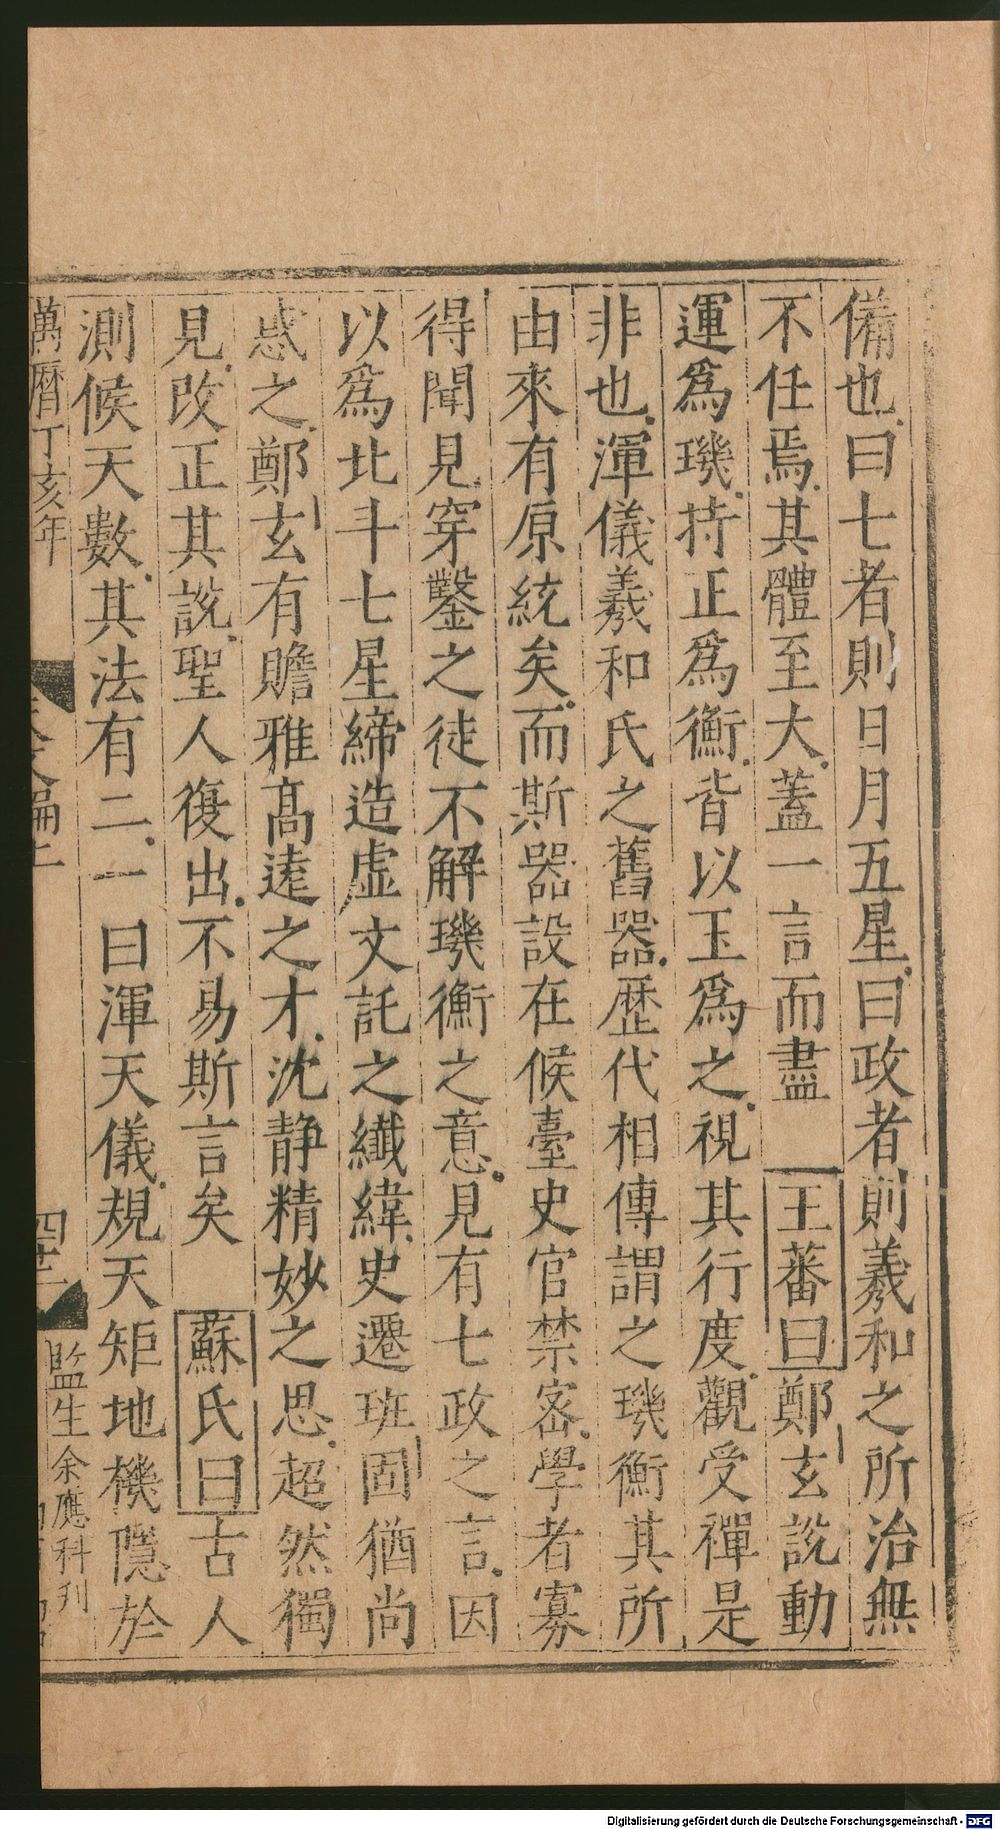 備也曰七者則日月五星曰政者則羲和之所治無
不任焉其體至大蓋一言而盡 王蕃曰鄭玄說動
運爲璣持正爲衡皆以玉爲之視其行度觀受禪是
非也渾儀羲和氏之舊器歷代相傳謂之璣衡其所
由來有原統矣而斯器設在候臺史官禁密學者寡
得聞見穿鑿之徒不解璣衡之意見有七政之言因
以爲北斗七星締造虛文託之纖緯史遷班固猶尚
惑之鄭玄有贍雅高遠之才沈静精妙之思超然獨
見改正其說聖人復出不易斯言矣 蘇氏曰古人
測候天數其法有二一曰渾天儀規天矩地機隱於
萬曆丁亥年
天文編上
監生余應科刊
Digitalisierung gefördert durch die Deutsche Forschungsgemeinschaft - DFG